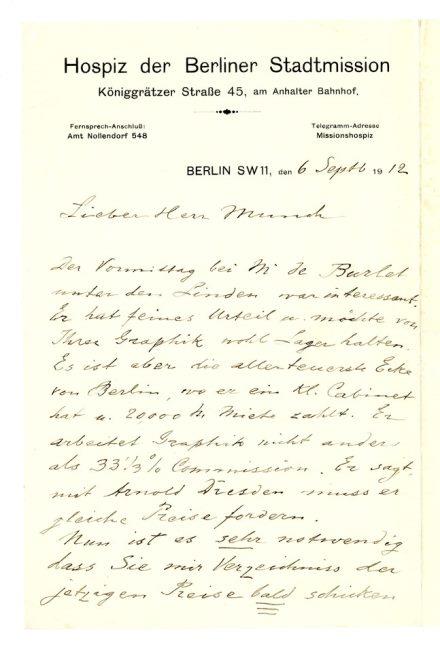 Hospiz der Berliner Stadtmission
Königgrätzer Straße 45, am Anhalter Bahnhof.
Fernsprech-Anschluß: Telegramm-Adresse
Amt Nollendorf 548 Missionshospiz
BERLIN SW11, den 6 Septb 1912
Lieber Herr Munch
Der Vormittag bei M de Burlet
unter den Linden war interessant.
Er hat feines Urteil u. möchte von
Ihrer Graphik wohl Lager halten.
Es ist aber die allerteuerste Ecke
von Berlin, wo er ein kl. Cabinet
hat u. 20000 M Miete zahlt. Er
arbeitet Graphik nicht anders
als 33⅓% Commission. Er sagt,
mit Arnold Dresden muss er
gleiche Preise fordern.
Nun ist es sehr notwendig
dass Sie mir Verzeichniss der
jetzigen Preise bald schicken